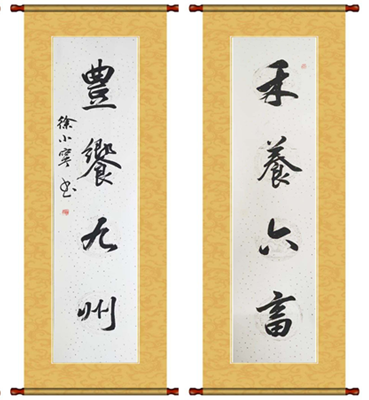 禾養六畜
豊饗九州
徐小寧书